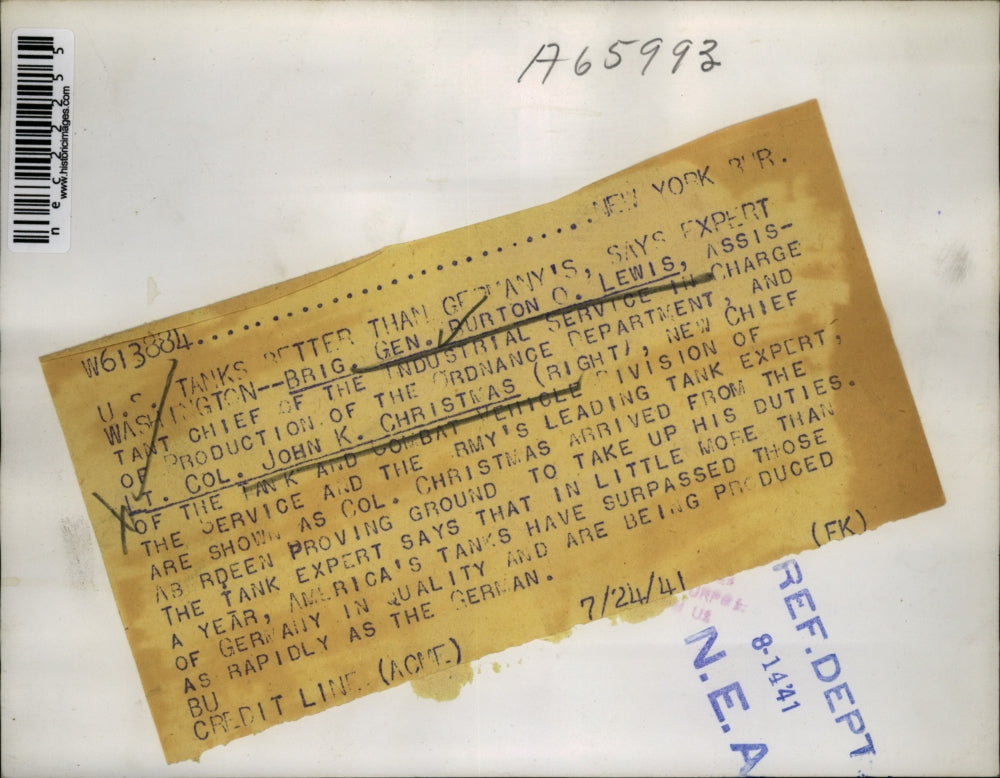 A65993
nec22255
www.historicimages.com
W613884.......................NEW YORK BUR.
U.S. TANKS BETTER THAN GERMANY'S, SAYS EXPERT
WASHINGTON--BRIG. GEN. BURTON O. LEWIS, ASSIS-
TANT CHIEF OF THE INDUSTRIAL SERVICE IN CHARGE
OF PRODUCTION OF THE ORDNANCE DEPARTMENT, AND
LT. COL. JOHN K. CHRISTMAS (RIGHT), NEW CHIEF
OF THE TANK AND COMBAT VEHICLE DIVISION OF
THE SERVICE AND THE ARMY'S LEADING TANK EXPERT,
ARE SHOWN AS COL. CHRISTMAS ARRIVED FROM THE
AB RDEEN PROVING GROUND TO TAKE UP HIS DUTIES.
THE TANK EXPERT SAYS THAT IN LITTLE MORE THAN
A YEAR, AMERICA'S TANKS HAVE SURPASSED THOSE
OF GERMANY IN QUALITY AND ARE BEING PRODUCED
AS RAPIDLY AS THE GERMAN.
BU
CREDIT LINE (ACME) 7/24/41 (FK)
REF. DEPT
8-14'41
N.E.A